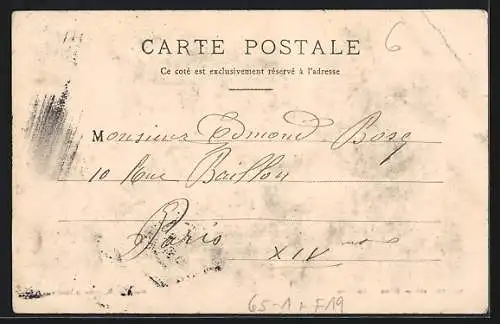 6
CARTE POSTALE
Ce coté est exclusivement réservé à l'adresse
Monsieur Edmond Bosq
10 Rue Baillou
Paris
XIVme
65-1 + F19